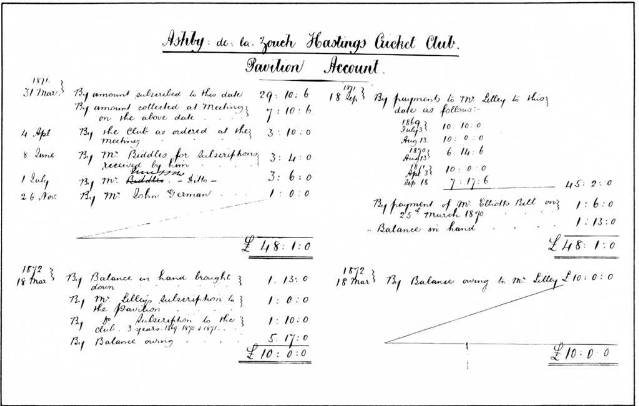 Ashby de la Zouch Hastings Cricket Club.
Pavilion Account.
1871
31 Mar } By amount subscribed to this date 29 : 10 : 6
By amount collected at Meeting }
on the above date } 7 : 10 : 6
4 Apl By the Club as ordered at the }
meeting } 3 : 10 : 0
8 June By Mr Biddles for Subscriptions }
received by him } 3 : 4 : 0
1 July By Mr - ditto - 3 : 6 : 0
26 Nov By Mr John German 1 : 0 : 0
£ 48 : 1 : 0
1872
18 Mar } By Balance in hand brought }
down } 1 : 13 : 0
By Mr Lilley's Subscription to }
the pavilion } 1 : 0 : 0
By Do Subscription to the }
club. 3 years 1869 1870 & 1871 } 1 : 10 : 0
By Balance owing 5 : 17 : 0
£ 10 : 0 : 0
1871
18 Sep } By payments to Mr Lilley to this }
date as follows:-
1869
July 3 } 10 : 10 : 0
Aug 13 10 : 0 : 0
1870
Aug 13 } 6 : 14 : 6
1871
Apl 3 } 10 : 0 : 0
Sep 18 7 : 17 : 6 45 : 2 : 0
By payment of Mr Elliott's Bill on }
25th March 1870 } 1 : 6 : 0
" Balance in hand 1 : 13 : 0
£ 48 : 1 : 0
1872
18 Mar } By Balance owing to Mr Lilley £ 10 : 0 : 0
£ 10 : 0 : 0